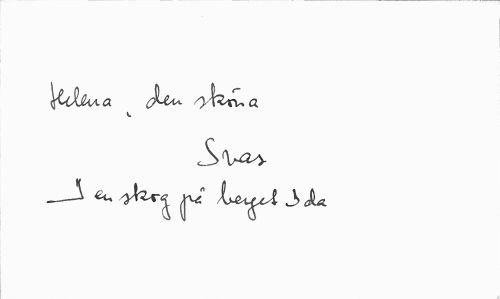 Helena, den sköna
Svas
I en skog på berget Ida